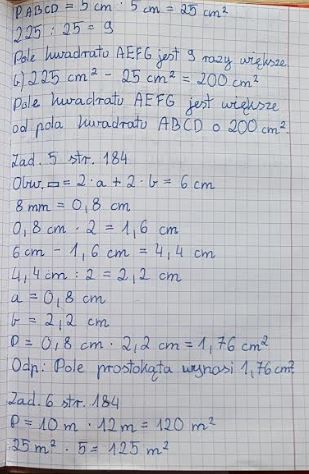 P ABCD = 5 cm · 5 cm = 25 cm²
225 : 25 = 9
Pole kwadratu AEFG jest 9 razy większe
b) 225 cm² - 25 cm² = 200 cm²
Pole kwadratu AEFG jest większe
od pola kwadratu ABCD o 200 cm²
Zad. 5 str. 184
Obw. ▭ = 2 · a + 2 · b = 6 cm
8 mm = 0,8 cm
0,8 cm · 2 = 1,6 cm
6 cm - 1,6 cm = 4,4 cm
4,4 cm : 2 = 2,2 cm
a = 0,8 cm
b = 2,2 cm
P = 0,8 cm · 2,2 cm = 1,76 cm²
Odp.: Pole prostokąta wynosi 1,76 cm²
Zad. 6 str. 184
P = 10 m · 12 m = 120 m²
25 m² · 5 = 125 m²